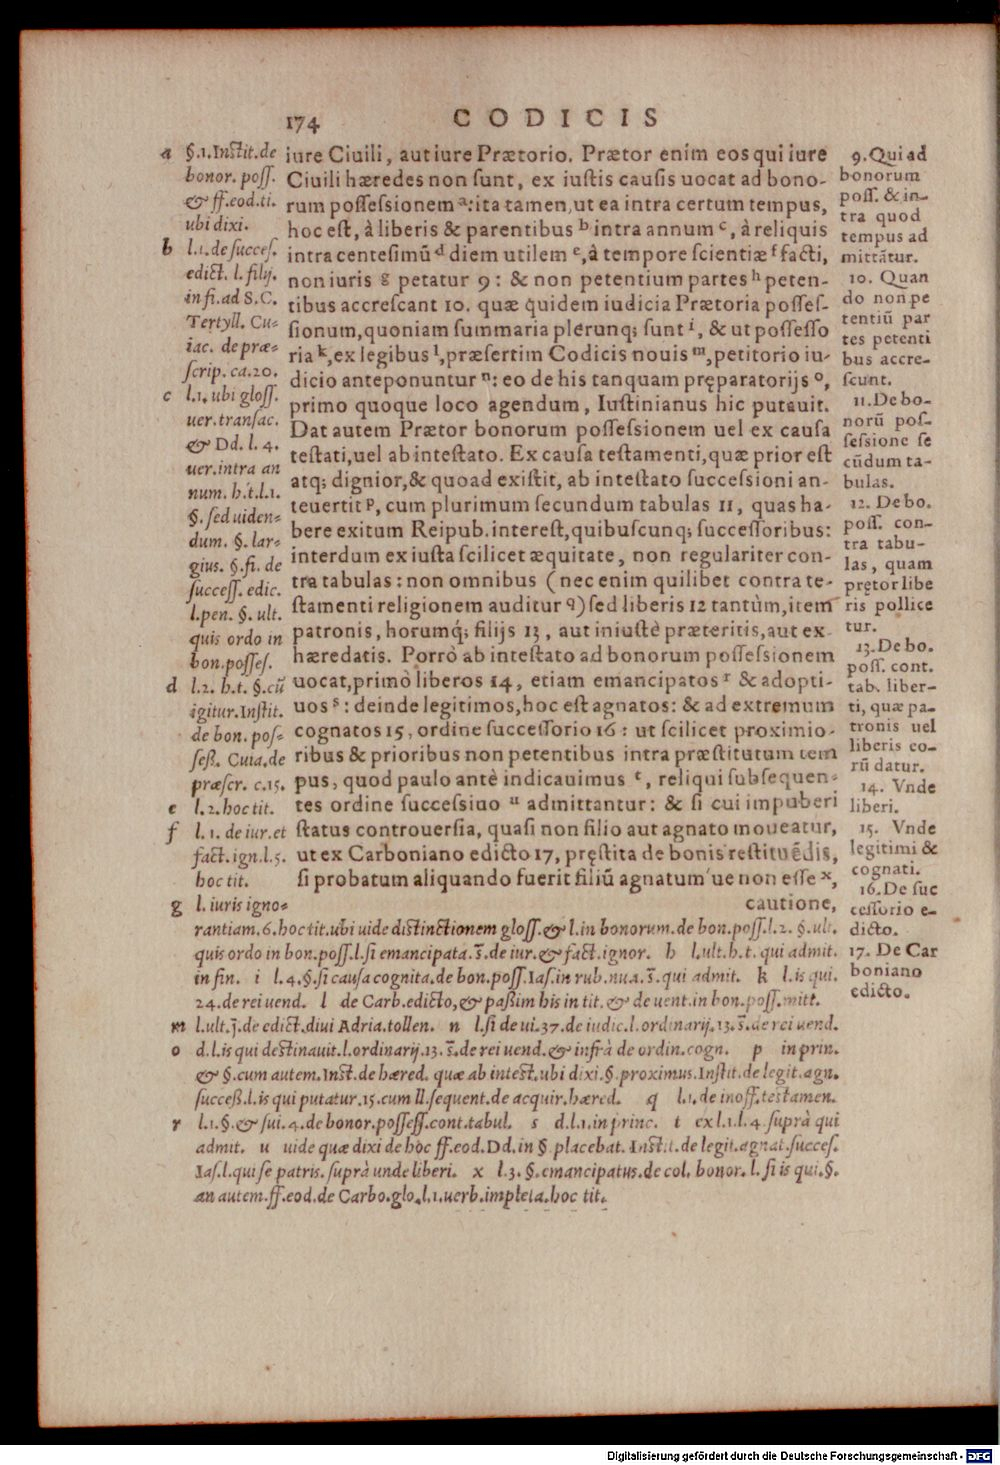 174
CODICIS
iure Ciuili, aut iure Prætorio. Prætor enim eos qui iure
Ciuili hæredes non sunt, ex iustis causis uocat ad bono-
rum possessionem a: ita tamen, ut ea intra certum tempus,
hoc est, à liberis & parentibus b intra annum c, à reliquis
intra centesimū d diem utilem e, à tempore scientiæ f facti,
non iuris g petatur 9: & non petentium partes h peten-
tibus accrescant 10. quæ quidem iudicia Prætoria posses-
sionum, quoniam summaria plerunq; sunt i, & ut possesso
ria k, ex legibus l, præsertim Codicis nouis m, petitorio iu-
dicio anteponuntur n: eo de his tanquam pręparatorijs o,
primo quoque loco agendum, Iustinianus hic putauit.
Dat autem Prætor bonorum possessionem uel ex causa
testati, uel ab intestato. Ex causa testamenti, quæ prior est
atq; dignior, & quoad existit, ab intestato successioni an-
teuertit p, cum plurimum secundum tabulas 11, quas ha-
bere exitum Reipub. interest, quibuscunq; successoribus:
interdum ex iusta scilicet æquitate, non regulariter con-
tra tabulas: non omnibus (nec enim quilibet contra te-
stamenti religionem auditur q) sed liberis 12 tantùm, item
patronis, horumq́; filijs 13, aut iniustè præteritis, aut ex-
hæredatis. Porrò ab intestato ad bonorum possessionem
uocat, primò liberos 14, etiam emancipatos r & adopti-
uos s: deinde legitimos, hoc est agnatos: & ad extremum
cognatos 15, ordine successorio 16: ut scilicet proximio-
ribus & prioribus non petentibus intra præstitutum tem
pus, quod paulo antè indicauimus t, reliqui subsequen-
tes ordine successiuo u admittantur: & si cui impuberi
status controuersia, quasi non filio aut agnato moueatur,
ut ex Carboniano edicto 17, pręstita de bonis restituēdis,
si probatum aliquando fuerit filiū agnatum ue non esse x,
cautione,
a §.1. Instit. de
bonor. poss.
& ff. eod. ti.
ubi dixi.
b l.1. de succes.
edict. l. filij.
in fi. ad S.C.
Tertyll. Cu-
iac. de præ-
scrip. ca. 20.
c l.1. ubi gloss.
uer. transac.
& Dd. l. 4.
uer. intra an
num. h.t.l.1.
§. sed uiden-
dum. §. lar-
gius. §. fi. de
success. edic.
l. pen. §. ult.
quis ordo in
bon. posses.
d l.2. h.t. §. cū
igitur. Instit.
de bon. pos-
seß. Cuia. de
præscr. c. 15.
e l.2. hoc tit.
f l. 1. de iur. et
fact. ign. l. 5.
hoc tit.
g l. iuris igno-
rantiam. 6. hoc tit. ubi uide distinctionem gloss. & l. in bonorum. de bon. poss. l. 2. §. ult.
quis ordo in bon. poss. l. si emancipata. 3̄. de iur. & fact. ignor. h l. ult. h. t. qui admit.
in fin. i l. 4. §. si causa cognita. de bon. poss. Ias. in rub. nu. 2. 3̄. qui admit. k l. is qui.
24. de rei uend. l de Carb. edicto, & paßim his in tit. & de uent. in bon. poss. mitt.
m l. ult. j̄. de edict. diui Adria. tollen. n l. si de ui. 37. de iudic. l. ordinarij. 13. 3̄. de rei uend.
o d. l. is qui destinauit. l. ordinarij. 13. 3̄. de rei uend. & infrà de ordin. cogn. p in prin.
& §. cum autem. Inst. de hæred. quæ ab intest. ubi dixi. §. proximus. Instit. de legit. agn.
succeß. l. is qui putatur. 15. cum ll. sequent. de acquir. hæred. q l. 1. de inoff. testamen.
r l. 1. §. & sui. 4. de bonor. possess. cont. tabul. s d. l. 1. in princ. t ex l. 1. l. 4. suprà qui
admit. u uide quæ dixi de hoc ff. eod. Dd. in §. placebat. Instit. de legit. agnat. succes.
Ias. l. qui se patris. suprà unde liberi. x l. 3. §. emancipatus. de col. bonor. l. si is qui. §.
an autem. ff. eod. de Carbo. glo. l. 1. uerb. impleta. hoc tit.
9. Qui ad
bonorum
poss. & in-
tra quod
tempus ad
mittātur.
10. Quan
do non pe
tentiū par
tes petenti
bus accre-
scunt.
11. De bo-
norū pos-
sessione se
cūdum ta-
bulas.
12. De bo.
poss. con-
tra tabu-
las, quam
prętor libe
ris pollice
tur.
13. De bo.
poss. cont.
tab. liber-
ti, quæ pa-
tronis uel
liberis eo-
rū datur.
14. Vnde
liberi.
15. Vnde
legitimi &
cognati.
16. De suc
cessorio e-
dicto.
17. De Car
boniano
edicto.
Digitalisierung gefördert durch die Deutsche Forschungsgemeinschaft - DFG